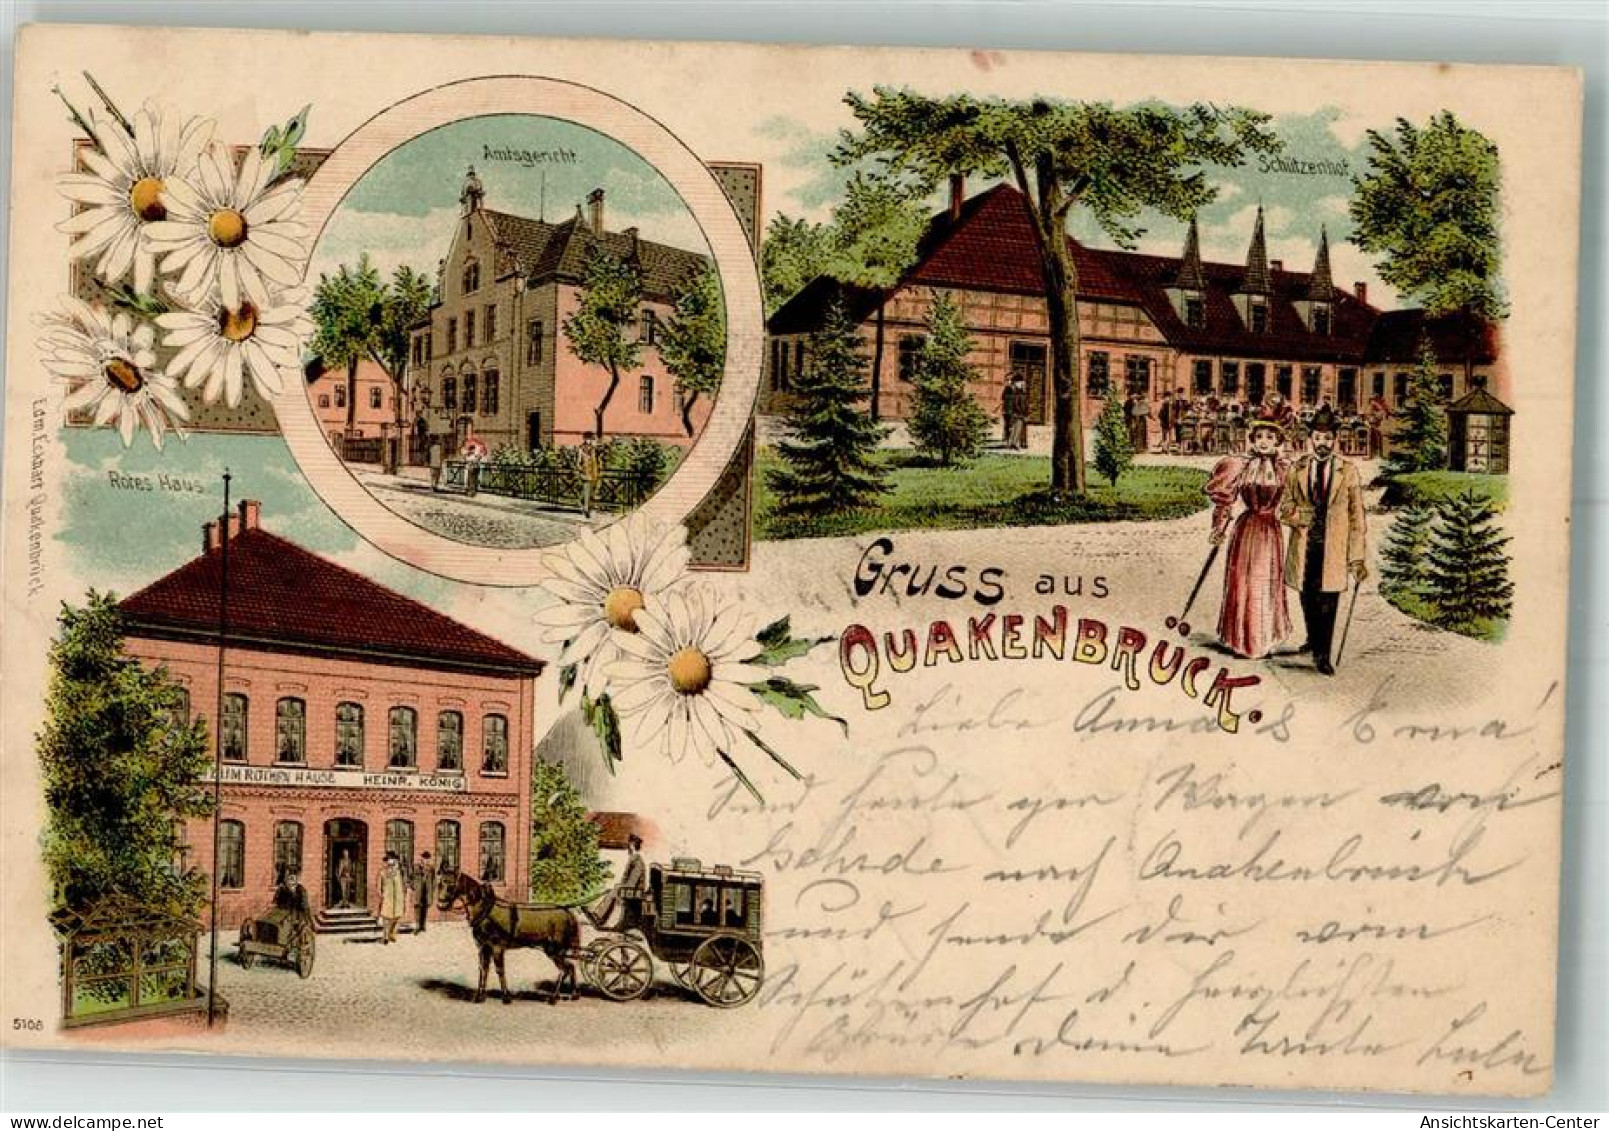 Amtsgericht
Schützenhof
Rotes Haus
Edm. Eckart Quakenbrück.
ZUM ROTHEN HAUSE HEINR. KÖNIG
Gruss aus
QUAKENBRÜCK.
Liebe Anna & Erna!
Sind heute per Wagen von
Gehrde nach Quakenbrück
und sende Dir vom
Schützenhof d. herzlichsten
Grüsse Deine Tante Lulu
5108
AnsichtsKarten-Center